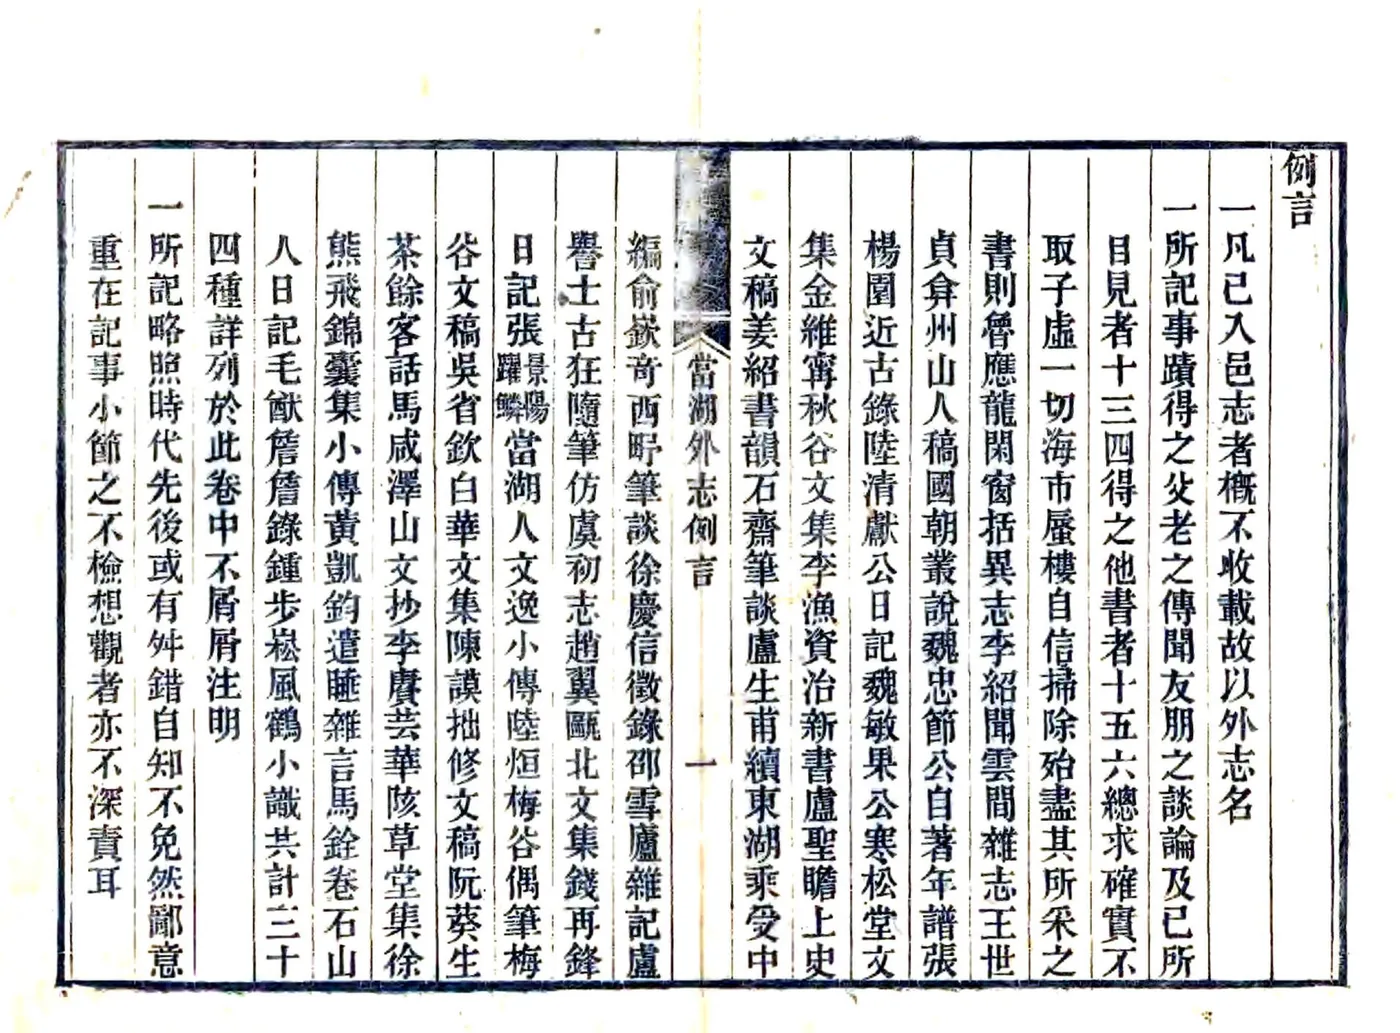 例言
一凡已入邑志者槪不收載故以外志名
一所記事蹟得之父老之傳聞友朋之談論及已所
目見者十三四得之他書者十五六總求確實不
取子虛一切海市蜃樓自信掃除殆盡其所采之
書則魯應龍閑窗括異志李紹聞雲間雜志王世
貞弇州山人稿國朝叢說魏忠節公自著年譜張
楊園近古錄陸清獻公日記魏敏果公寒松堂文
集金維寗秋谷文集李漁資治新書盧聖瞻上史
文稿姜紹書韻石齋筆談盧生甫續東湖乘受中
當湖外志例言
一
編俞嶔奇西野筆談徐慶信徵錄邵雪廬雜記盧
譽士古狂隨筆仿虞初志趙翼甌北文集錢再鋒
日記張景陽躍鱗當湖人文逸小傳陸烜梅谷偶筆梅
谷文稿吳省欽白華文集陳謨拙修文稿阮葵生
茶餘客話馬咸澤山文抄李賡芸華陔草堂集徐
熊飛錦囊集小傳黃凱鈞遣睡雜言馬銓卷石山
人日記毛猷詹詹錄鍾步崧風鶴小識共計三十
四種詳列於此卷中不屑屑注明
一所記略照時代先後或有舛錯自知不免然鄙意
重在記事小節之不檢想觀者亦不深責耳